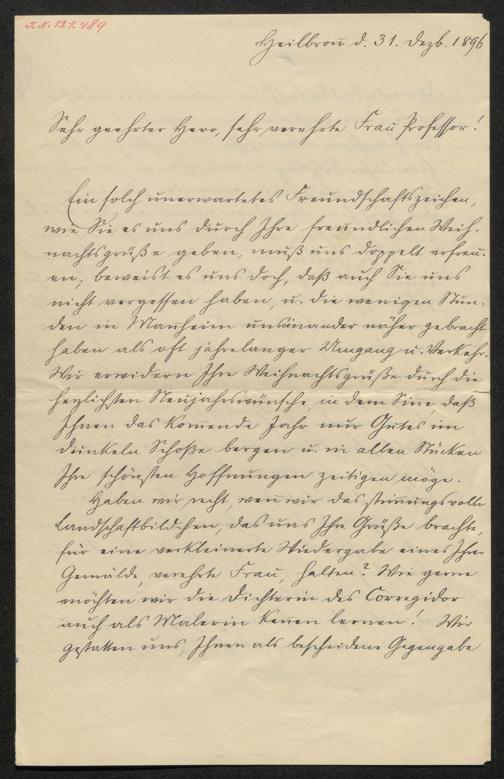 I.N. 121.489
Heilbron̄ d. 31. Dezb. 1896
Sehr geehrter Herr, sehr verehrte Frau Professor!
Ein solch unerwartetes Freundschaftszeichen,
wie Sie es uns durch Ihre freundlichen Weih-
nachtsgrüße geben, muß uns doppelt erfreu-
en; beweist es uns doch, daß auch Sie uns
nicht vergessen haben, u. die wenigen Stun-
den in Manheim uns einander näher gebracht
haben als oft jahrelanger Umgang u. Verkehr.
Wir erwidern Ihre Weihnachtsgrüße durch die
herzlichsten Neujahrswünsche, in dem Sin̄e daß
Ihnen das kom̄ende Jahr nur Gutes im
dunkeln Schoße bergen u. in allen Stücken
Ihre schönsten Hoffnungen zeitigen möge.
Haben wir recht, wen̄ wir das stim̄ungsvolle
Landschaftbildchen, das uns Ihre Grüße brachte,
für eine verkleinerte Wiedergabe eines Ihrer
Gemälde, verehrte Frau, halten? Wie gerne
möchten wir die Dichterin des Corregidor
auch als Malerin ken̄en lernen! Wir
gestatten uns, Ihnen als bescheidene Gegengabe